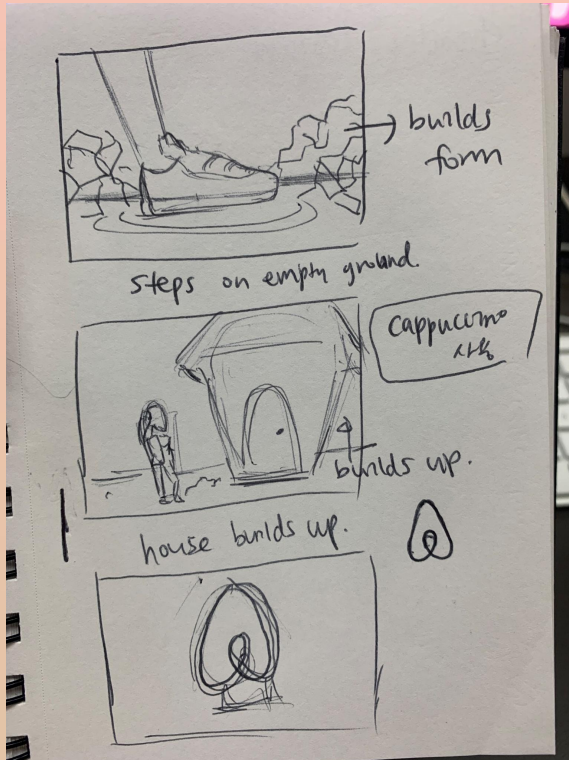 builds
form
steps on empty ground.
cappuccino
사용
builds up.
house builds up.